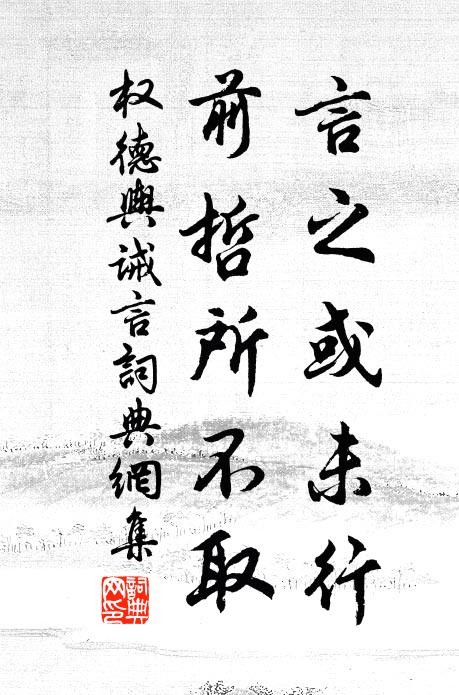 言之或未行
前哲所不取
权德舆诫言詞典網集
詞典
网印